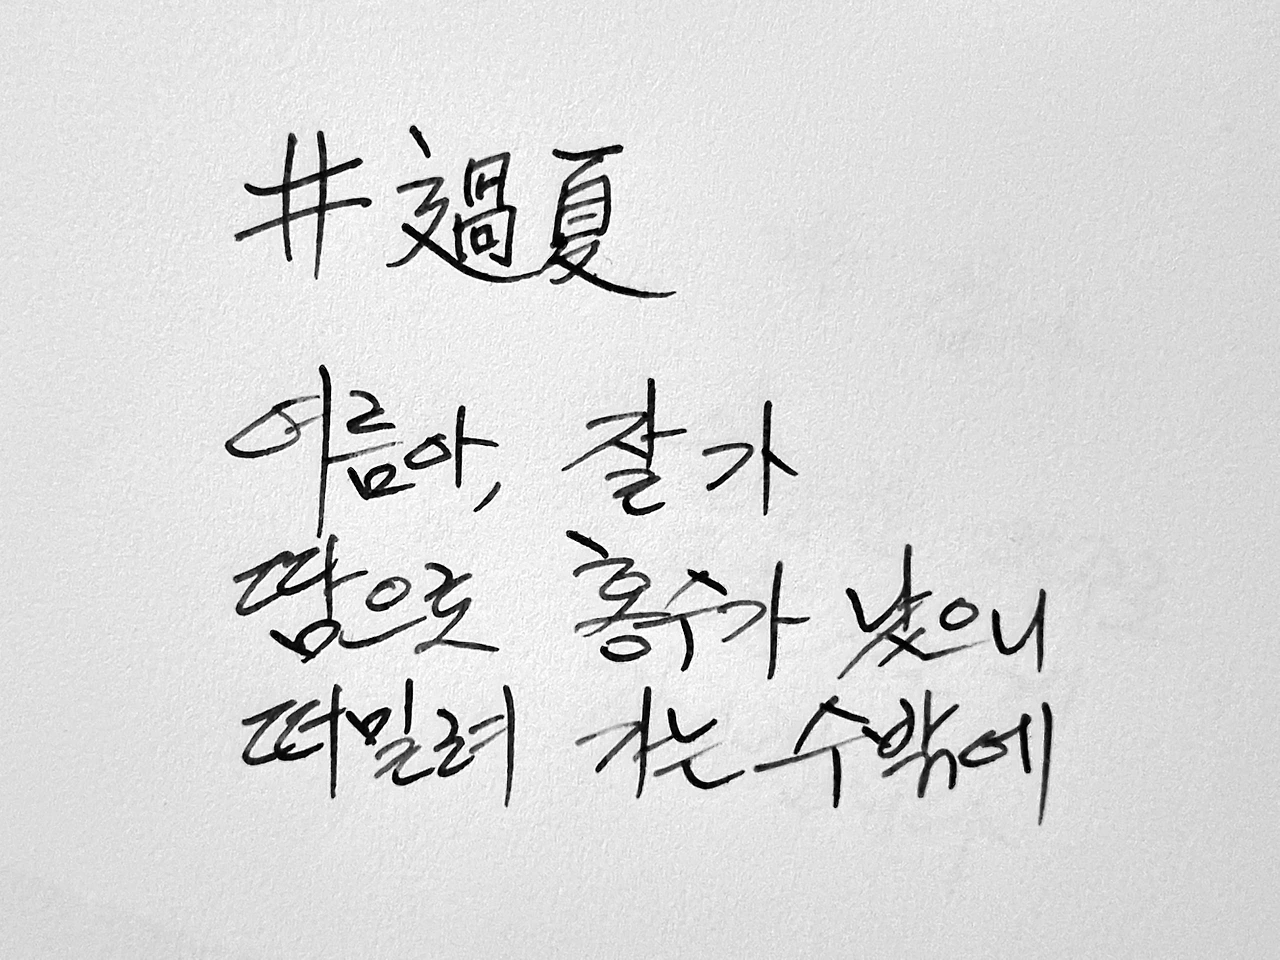 #過夏
여름아, 잘 가
땀으로 홍수가 났으니
떠밀려 가는 수밖에